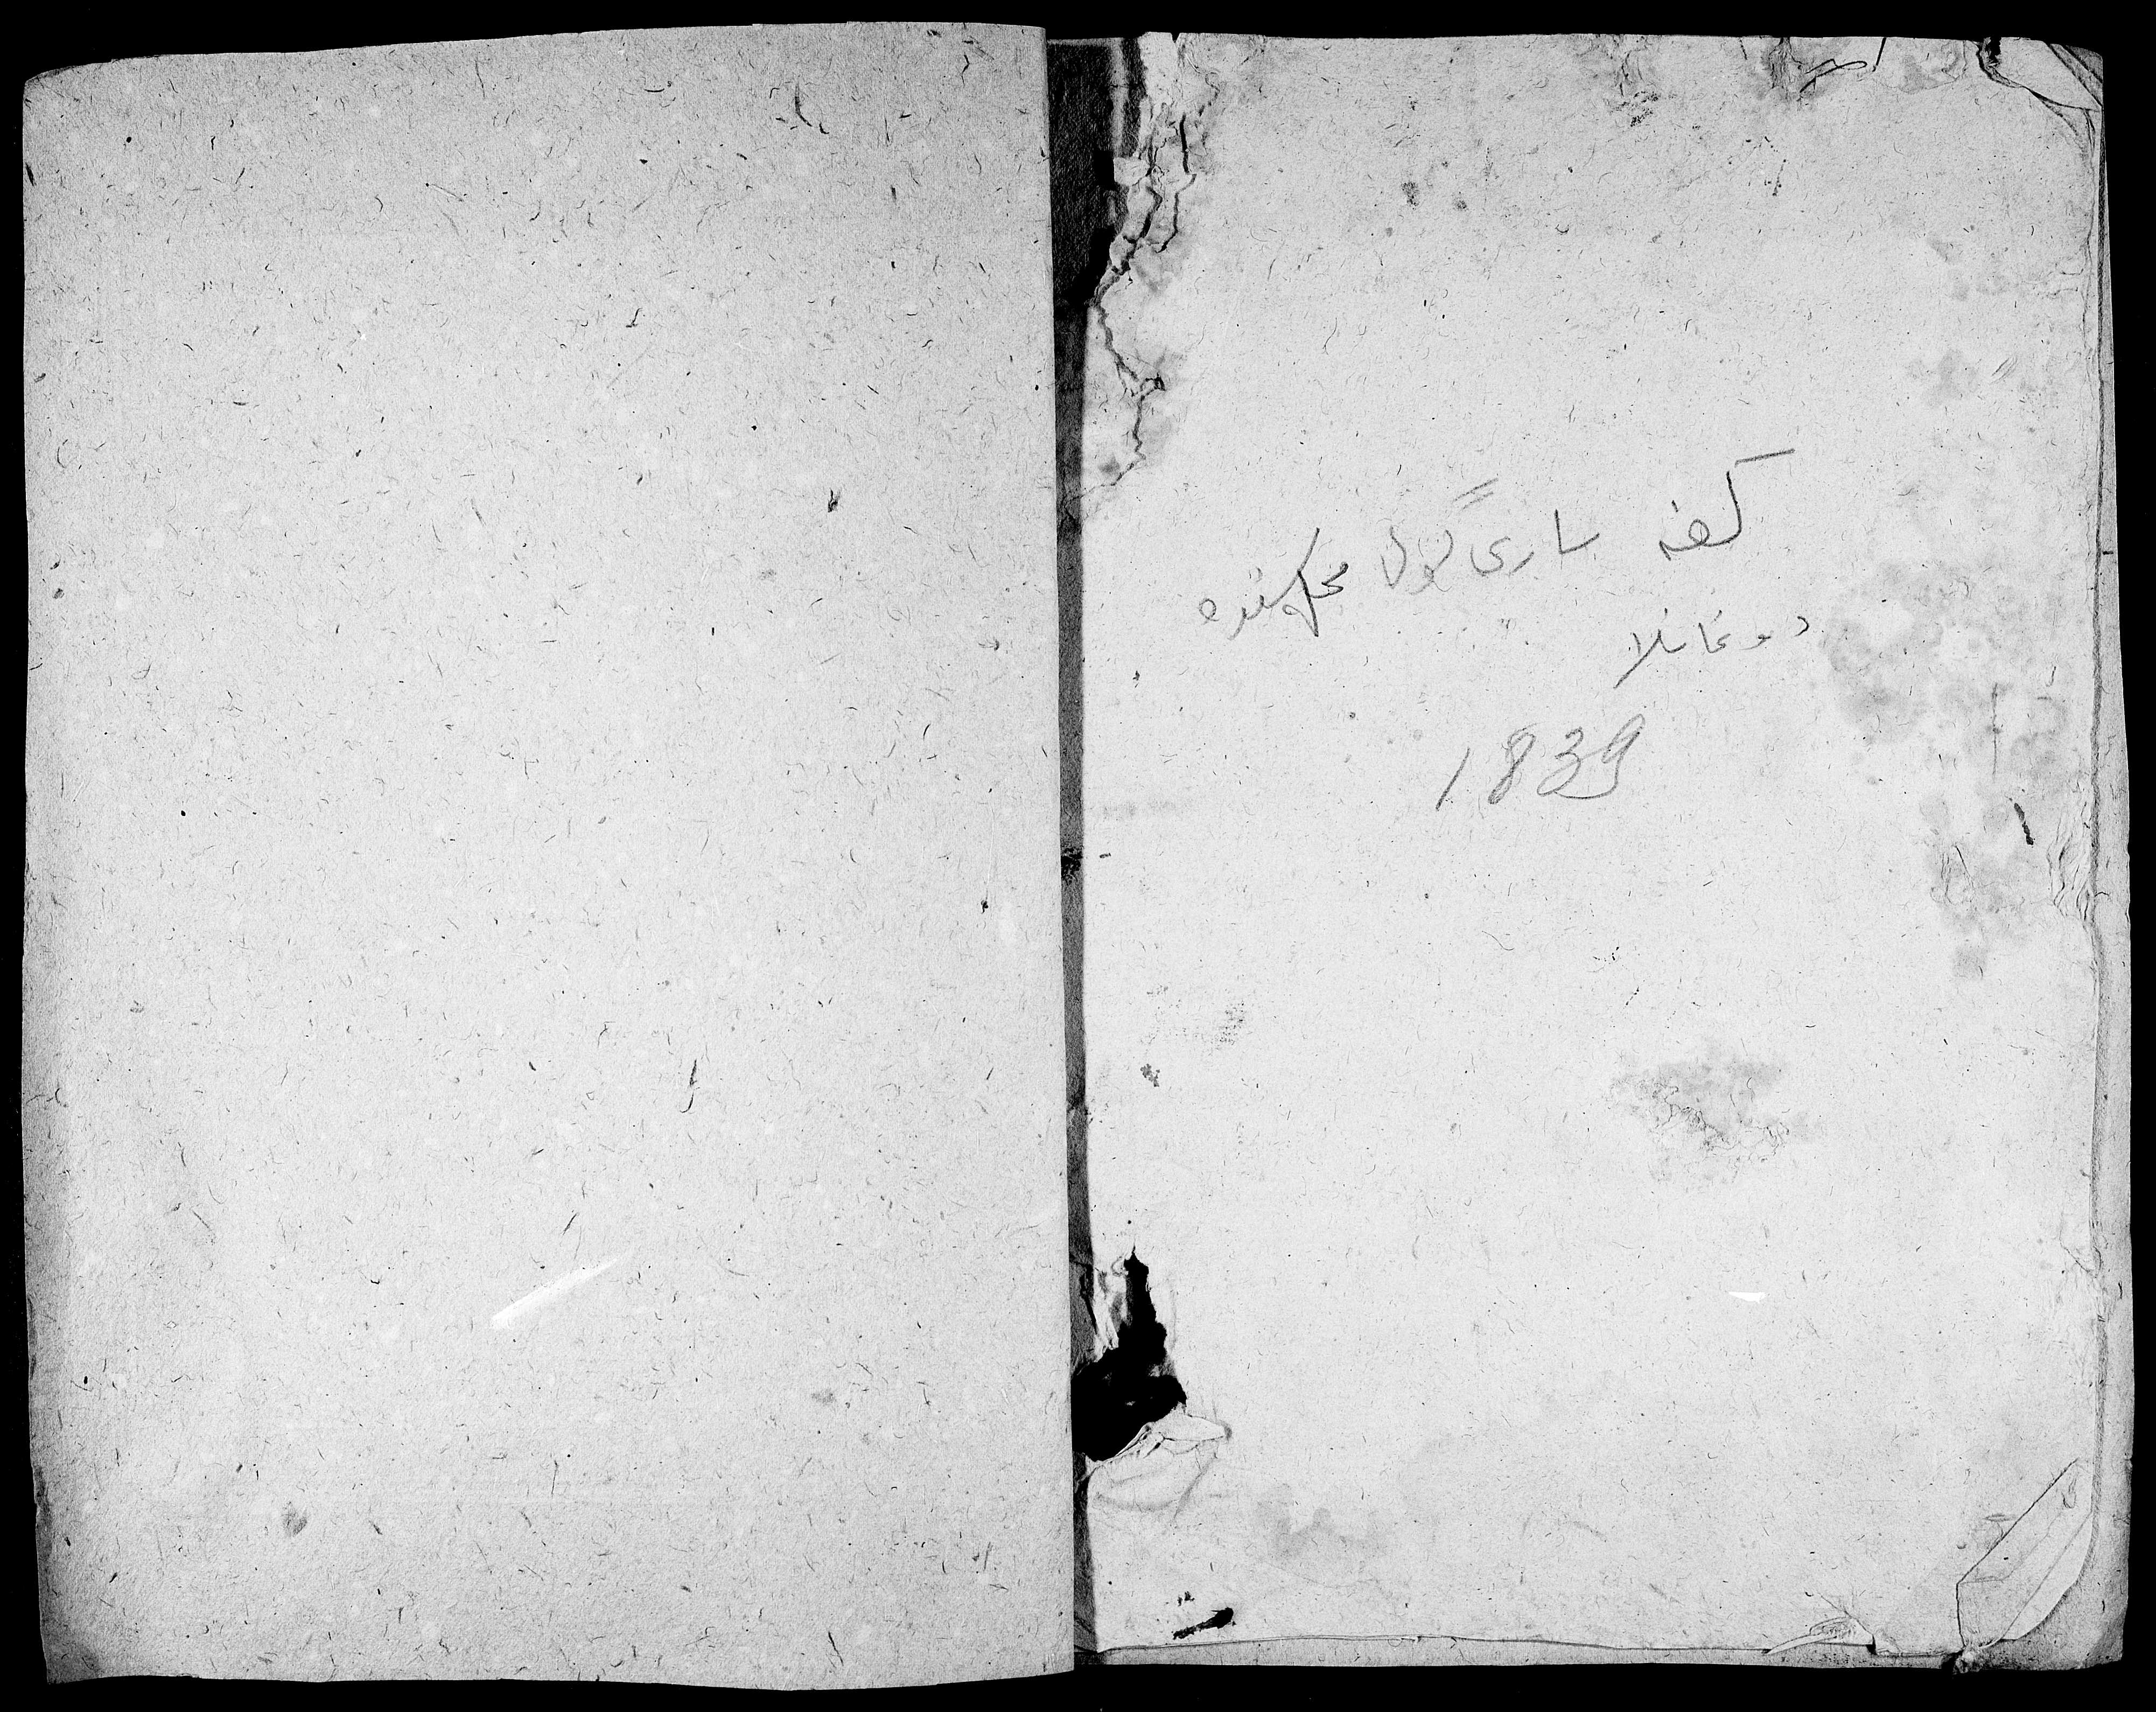 كفه ساری گول محله‌سنده
دوغانلا
1839